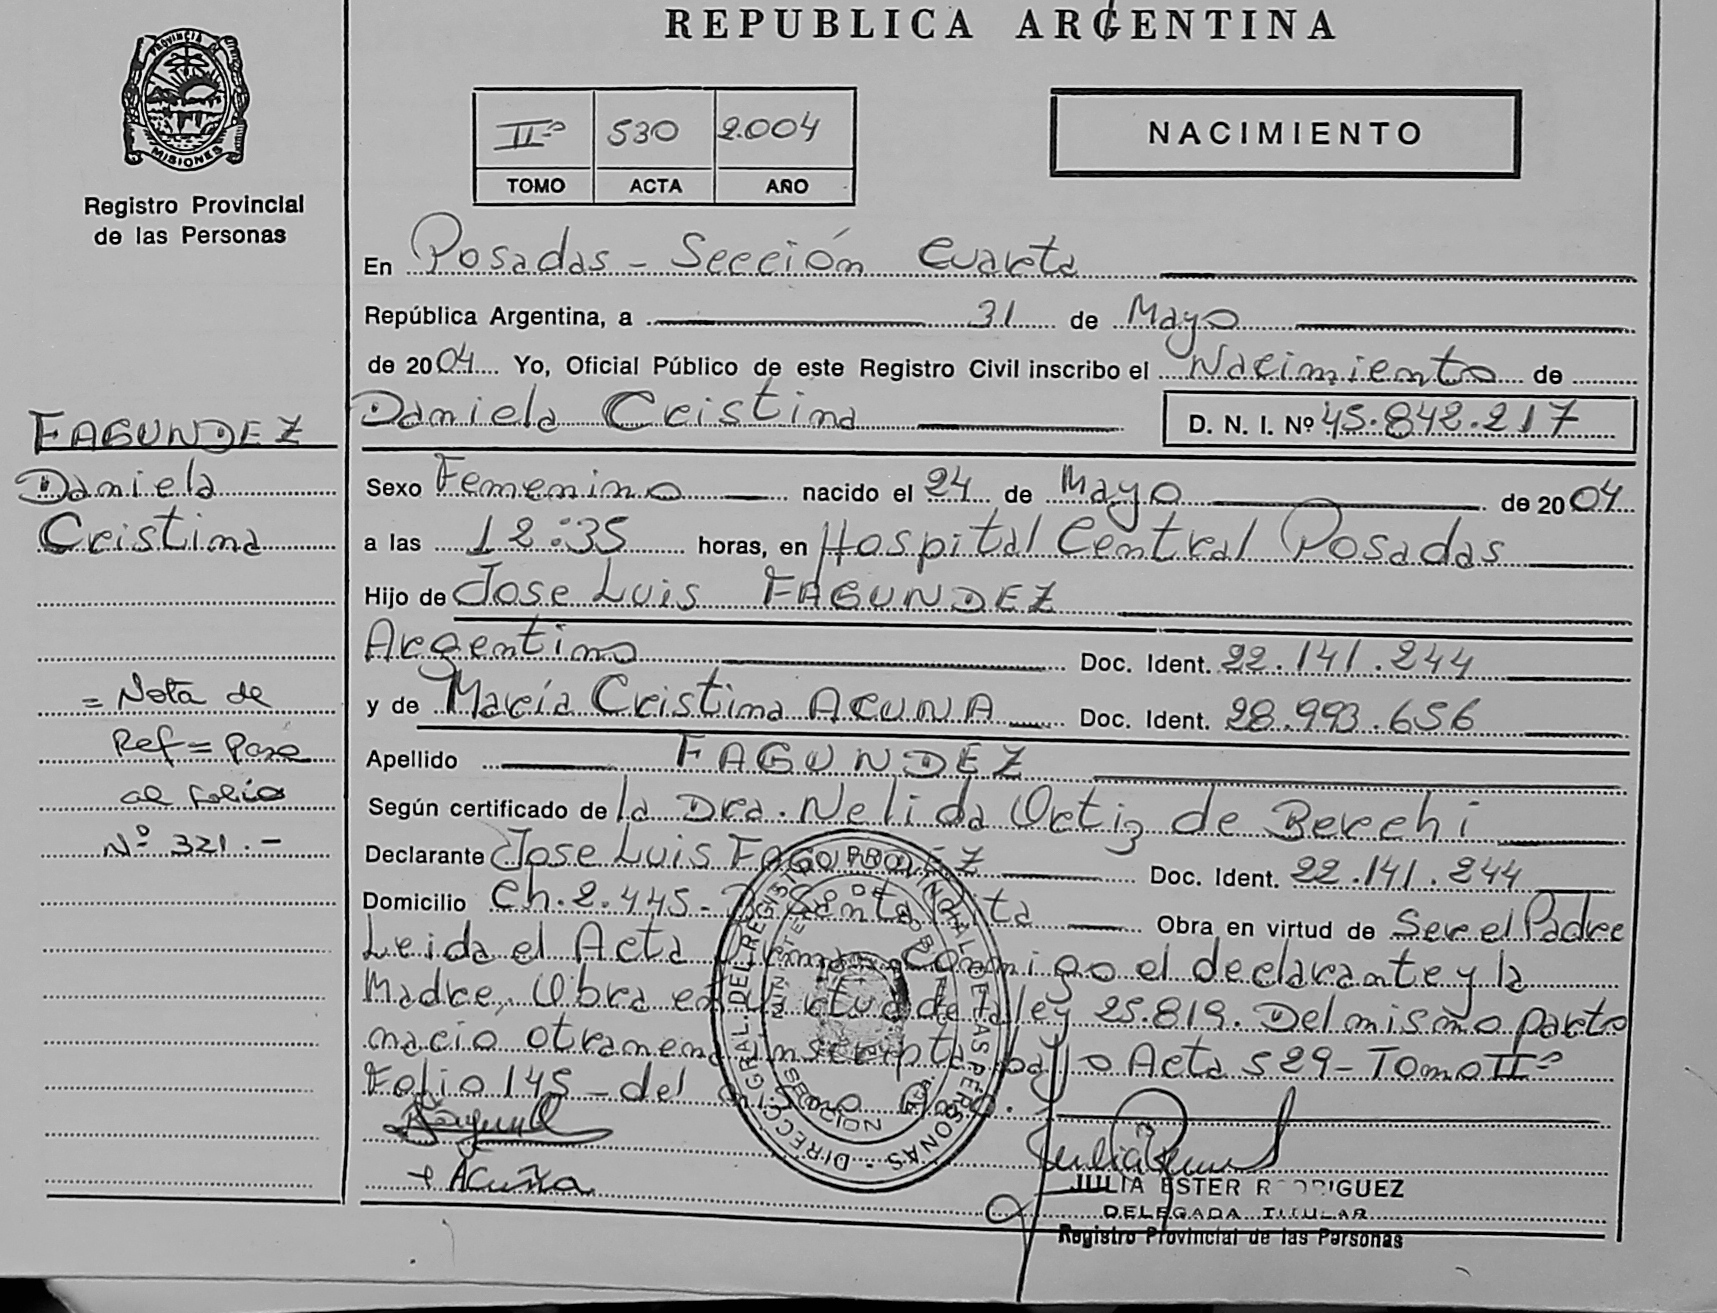 REPUBLICA ARGENTINA
PROVINCIA DE
MISIONES
Registro Provincial
de las Personas
IIº 530 2.004
TOMO ACTA AÑO
NACIMIENTO
En Posadas - Sección Cuarta
República Argentina, a 31 de Mayo
de 2004 Yo, Oficial Público de este Registro Civil inscribo el Nacimiento de
Daniela Cristina D. N. I. Nº 45.842.217
FAGUNDEZ
Daniela
Cristina
Sexo Femenino nacido el 24 de Mayo de 2004
a las 12:35 horas, en Hospital Central Posadas
Hijo de Jose Luis FAGUNDEZ
Argentino Doc. Ident. 22.141.244
y de María Cristina ACUNA Doc. Ident. 28.993.656
= Nota de
Ref = Pase
al folio
Nº 321.-
Apellido FAGUNDEZ
Según certificado de la Dra. Nelida Ortiz de Berchi
Declarante Jose Luis FAGUNDEZ Doc. Ident. 22.141.244
Domicilio Ch. 2.445- Santa Rita Obra en virtud de Ser el Padre
Leida el Acta Firman conmigo el declarante y la
Madre, Obra en virtud de la ley 25.819. Del mismo parto
nacio otra nena inscripta bajo Acta 529- Tomo IIº
Folio 145 - del
DIRECC. GRAL. DEL REGISTRO PROVINCIAL DE LAS PERSONAS
MISIONES
Acuña
JULIA ESTER RODRIGUEZ
DELEGADA TITULAR
Registro Provincial de las Personas